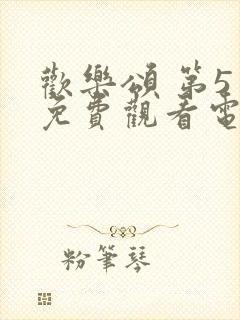 歡樂頌 第5
免費觀看電
粉筆琴